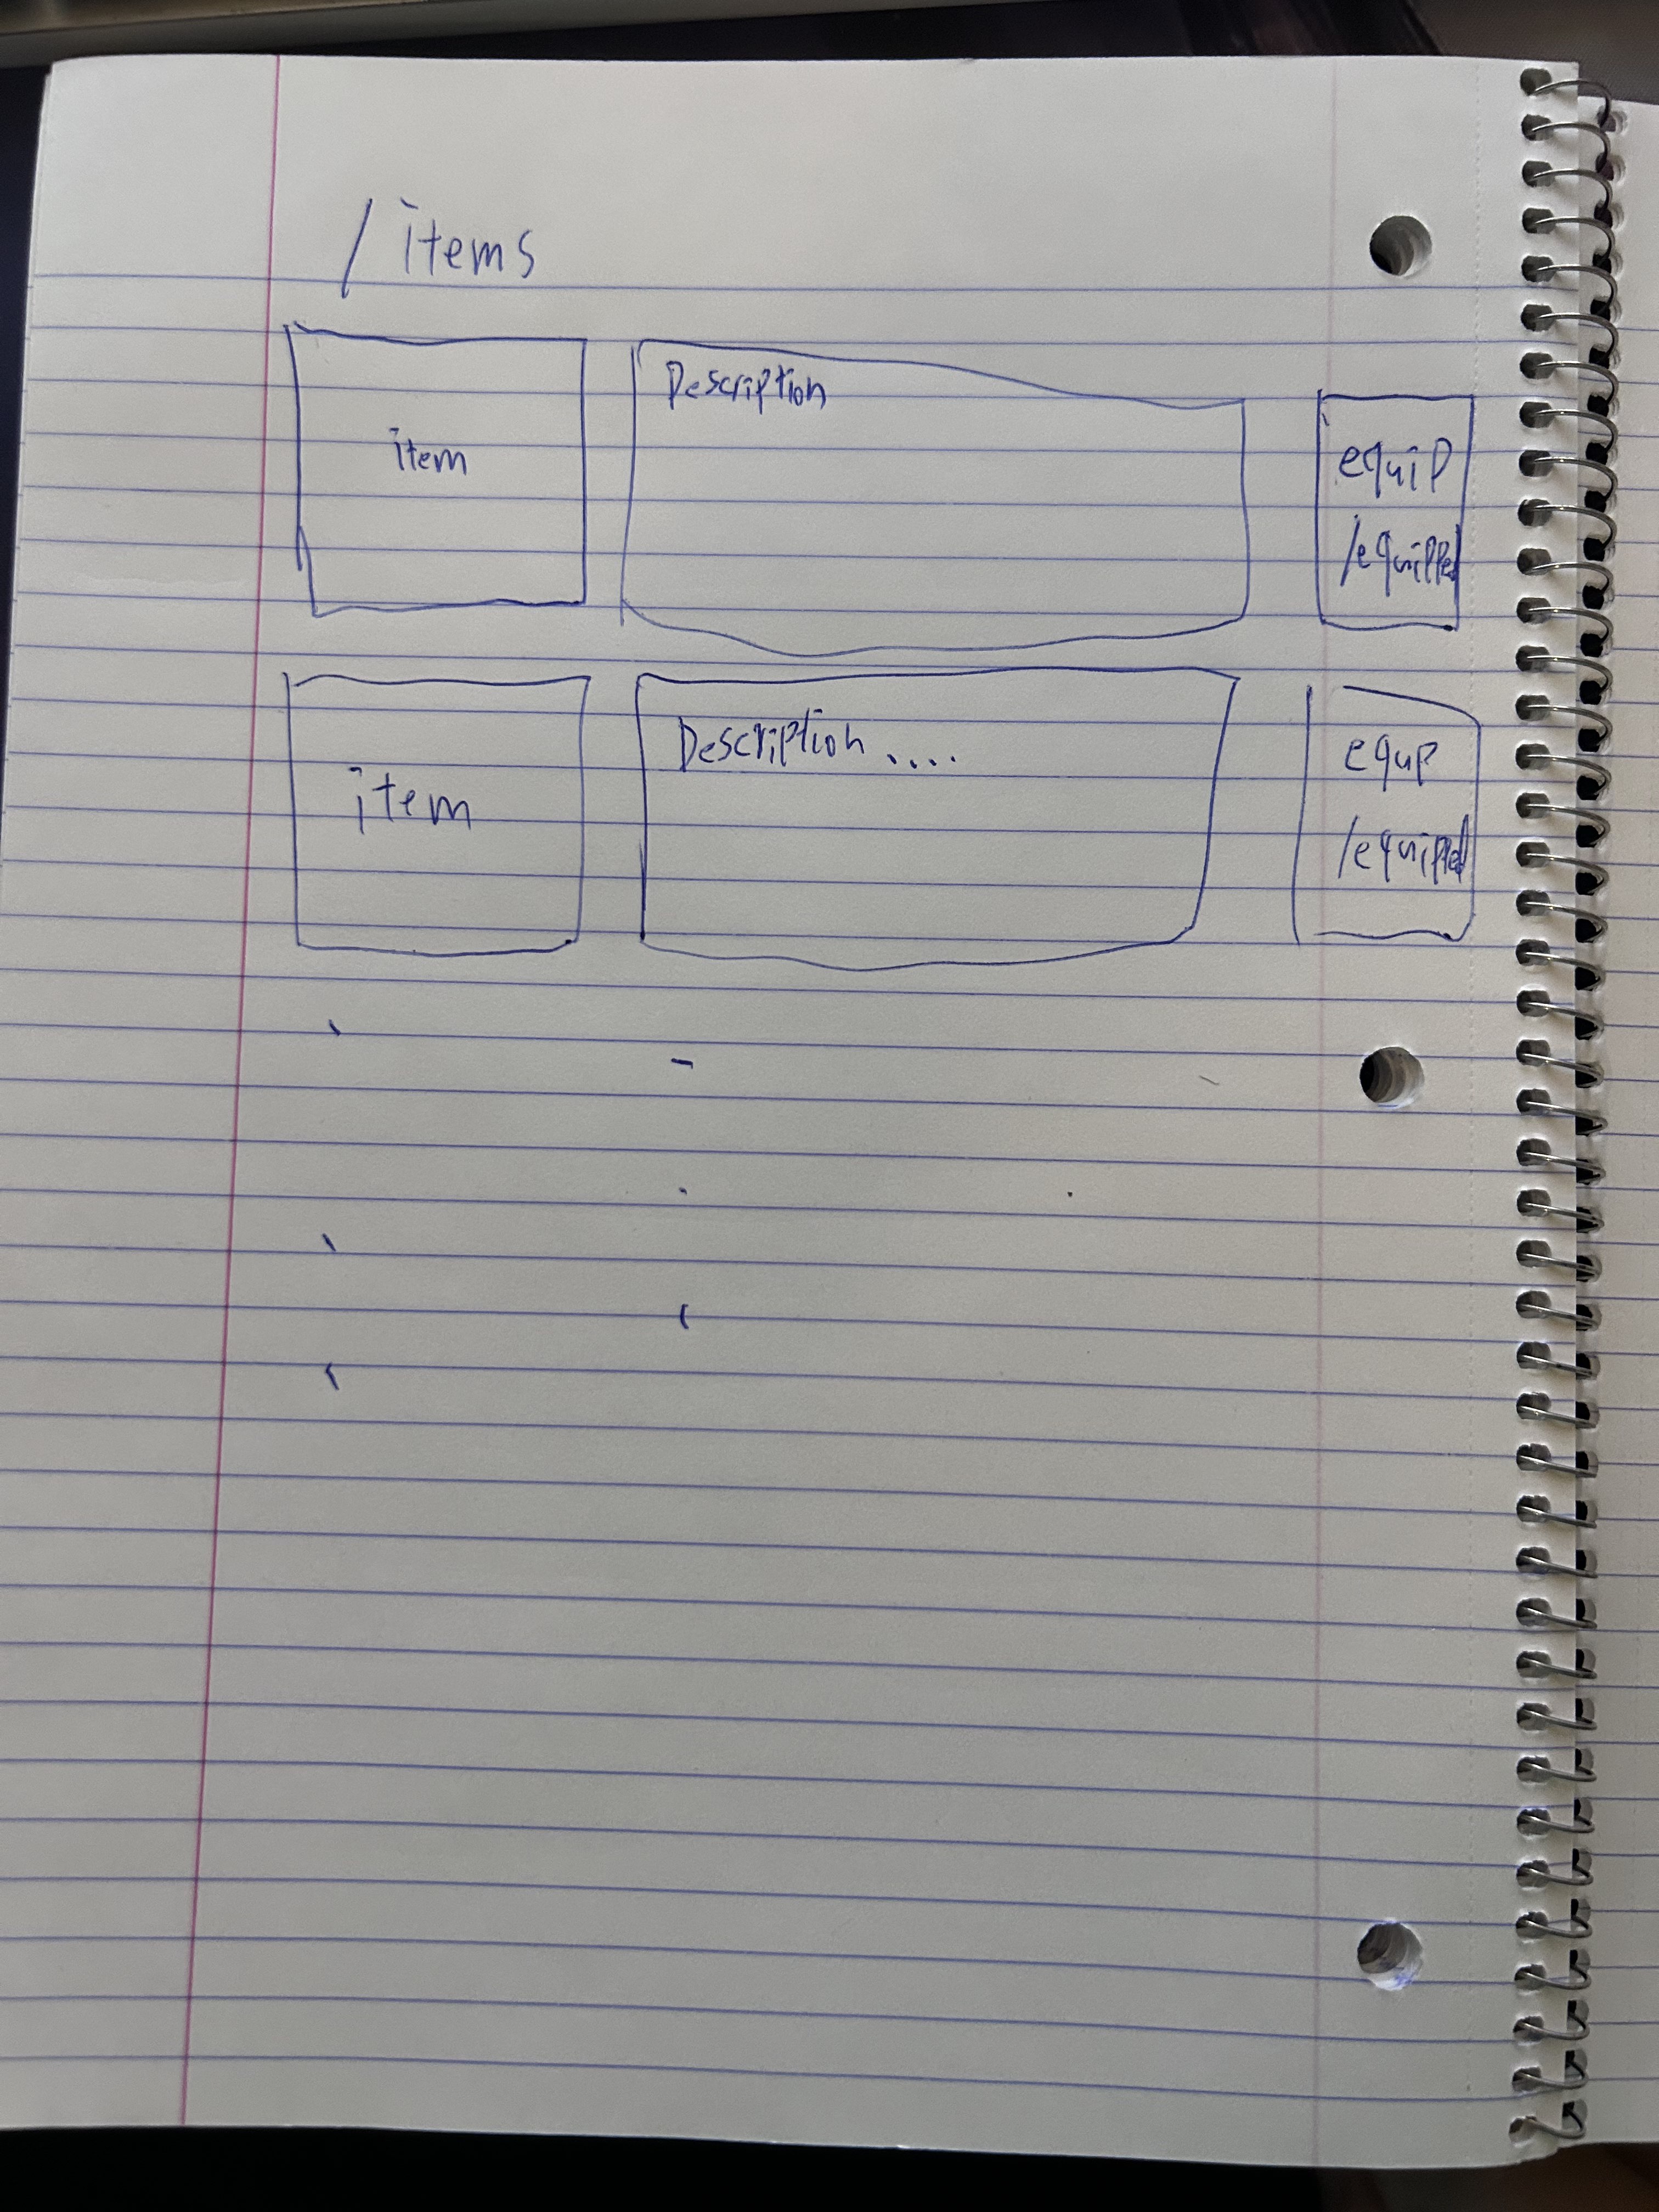 / items
item
Description
equip
/equipped
item
Description ....
equp
/equipped